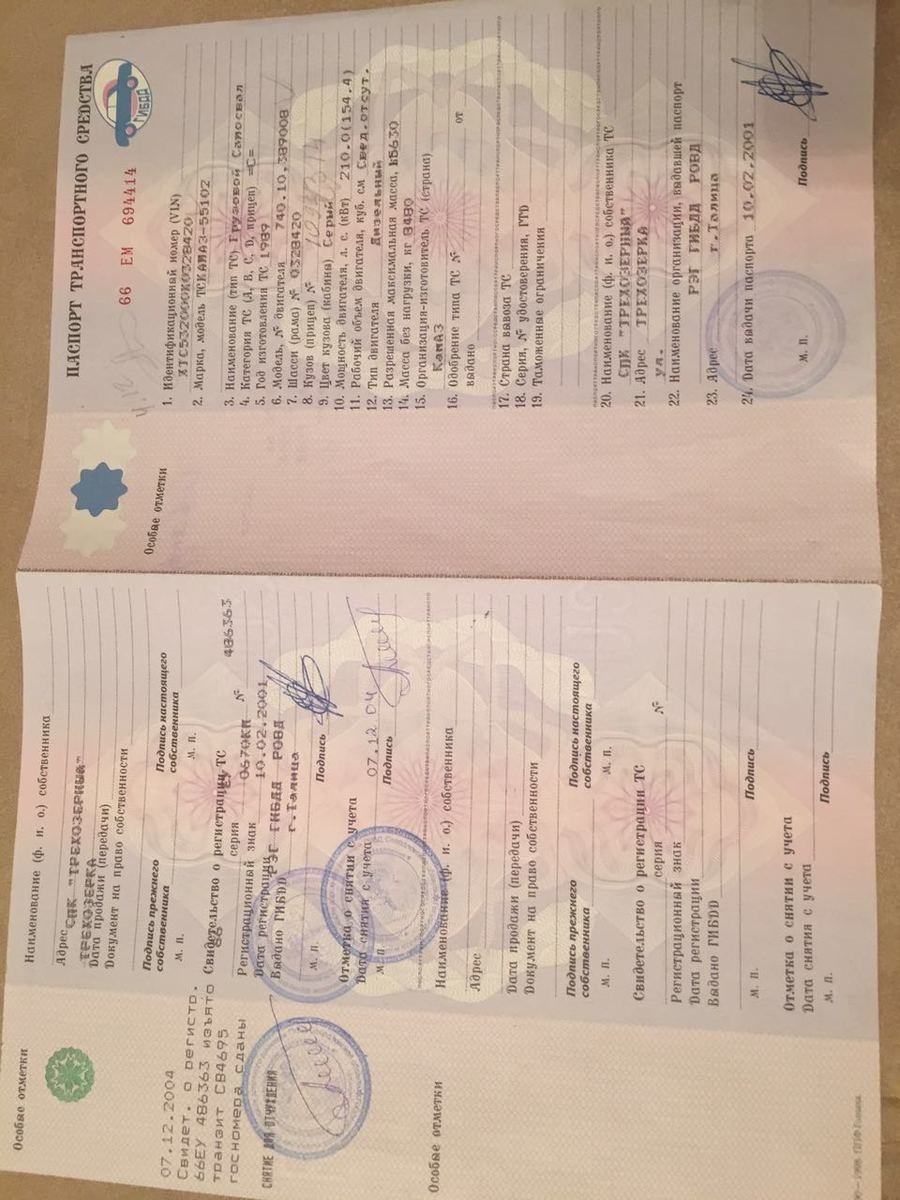 ПАСПОРТ ТРАНСПОРТНОГО СРЕДСТВА
ГИБДД
66 ЕМ 694414
Особые отметки
1. Идентификационный номер (VIN)
XTC532000K0328420
2. Марка, модель ТС КАМАЗ-55102
3. Наименование (тип ТС) Грузовой Самосвал
4. Категория ТС (А, В, С, D, прицеп) =C=
5. Год изготовления ТС 1989
6. Модель, № двигателя 740.10.389008
7. Шасси (рама) № 0328420
8. Кузов (прицеп) №
9. Цвет кузова (кабина) Серый
10. Мощность двигателя, л. с. (кВт) 210.0(154.4)
11. Рабочий объем двигателя, куб. см Свед.отсут.
12. Тип двигателя Дизельный
13. Разрешенная максимальная масса, 15630
14. Масса без нагрузки, кг 8480
15. Организация-изготовитель ТС (страна)
КамАЗ
16. Одобрение типа ТС № от
выдано
17. Страна вывоза ТС
18. Серия, № удостоверения, ГТД
19. Таможенные ограничения
20. Наименование (ф. и. о.) собственника ТС
СПК "ТРЕХОЗЕРНЫЙ"
21. Адрес ТРЕХОЗЕРКА
ул.
22. Наименование организации, выдавшей паспорт
РЭГ ГИБДД РОВД
23. Адрес г.Талица
24. Дата выдачи паспорта 10.02.2001
М. П. Подпись
Особые отметки
07.12.2004
Свидет. о регистр.
66ЕУ 486363 изъято
транзит СВ4695
госномера сданы
СНЯТИЕ ДЛЯ ОТЧУЖДЕНИЯ
Особые отметки
Наименование (ф. и. о.) собственника
СПК "ТРЕХОЗЕРНЫЙ"
Адрес
ТРЕХОЗЕРКА
Дата продажи (передачи)
Документ на право собственности
Подпись прежнего собственника
Подпись настоящего собственника
М. П. М. П.
Свидетельство о регистрации ТС
серия № 486363
Регистрационный знак 0670КН
Дата регистрации 10.02.2001
Выдано ГИБДД РЭГ ГИБДД РОВД
г.Талица
М. П. Подпись
Отметка о снятии с учета
Дата снятия с учета 07.12.04
М. П. Подпись
Наименование (ф. и. о.) собственника
Адрес
Дата продажи (передачи)
Документ на право собственности
Подпись прежнего собственника
Подпись настоящего собственника
М. П. М. П.
Свидетельство о регистрации ТС
серия №
Регистрационный знак
Дата регистрации
Выдано ГИБДД
М. П. Подпись
Отметка о снятии с учета
Дата снятия с учета
М. П. Подпись